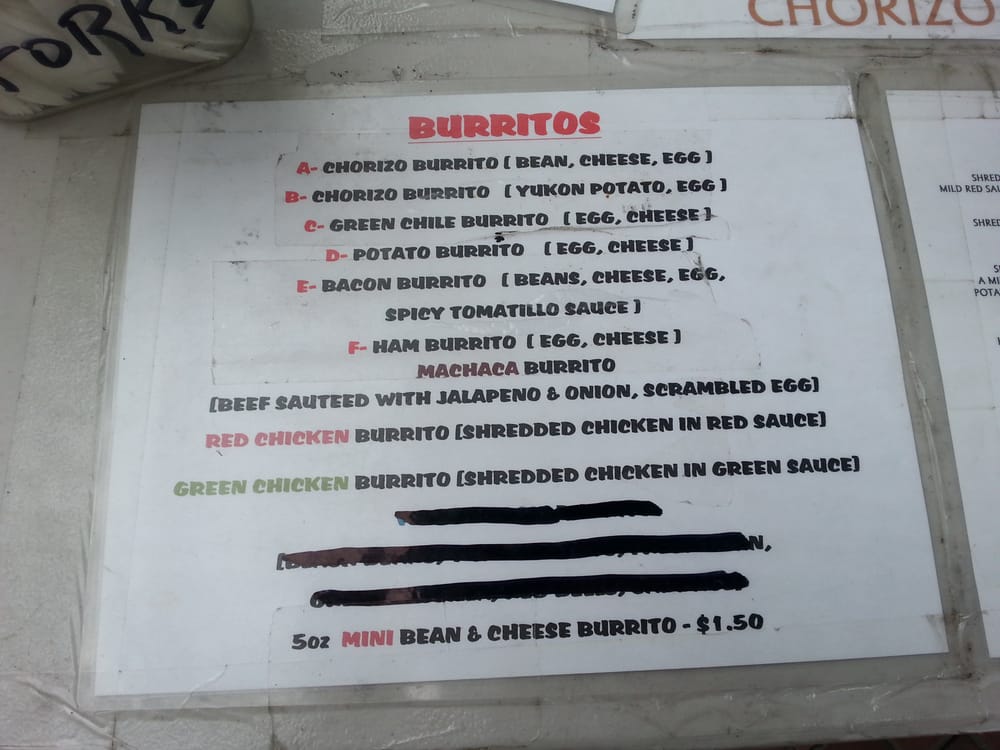 FORKS
CHORIZO
BURRITOS
A- CHORIZO BURRITO ( BEAN, CHEESE, EGG )
B- CHORIZO BURRITO ( YUKON POTATO, EGG )
C- GREEN CHILE BURRITO ( EGG, CHEESE )
D- POTATO BURRITO ( EGG, CHEESE )
E- BACON BURRITO ( BEANS, CHEESE, EGG,
SPICY TOMATILLO SAUCE )
F- HAM BURRITO ( EGG, CHEESE )
MACHACA BURRITO
(BEEF SAUTEED WITH JALAPENO & ONION, SCRAMBLED EGG)
RED CHICKEN BURRITO (SHREDDED CHICKEN IN RED SAUCE)
GREEN CHICKEN BURRITO (SHREDDED CHICKEN IN GREEN SAUCE)
5oz MINI BEAN & CHEESE BURRITO - $1.50
SHRED
MILD RED SAU
SHRED
A MI
POTA